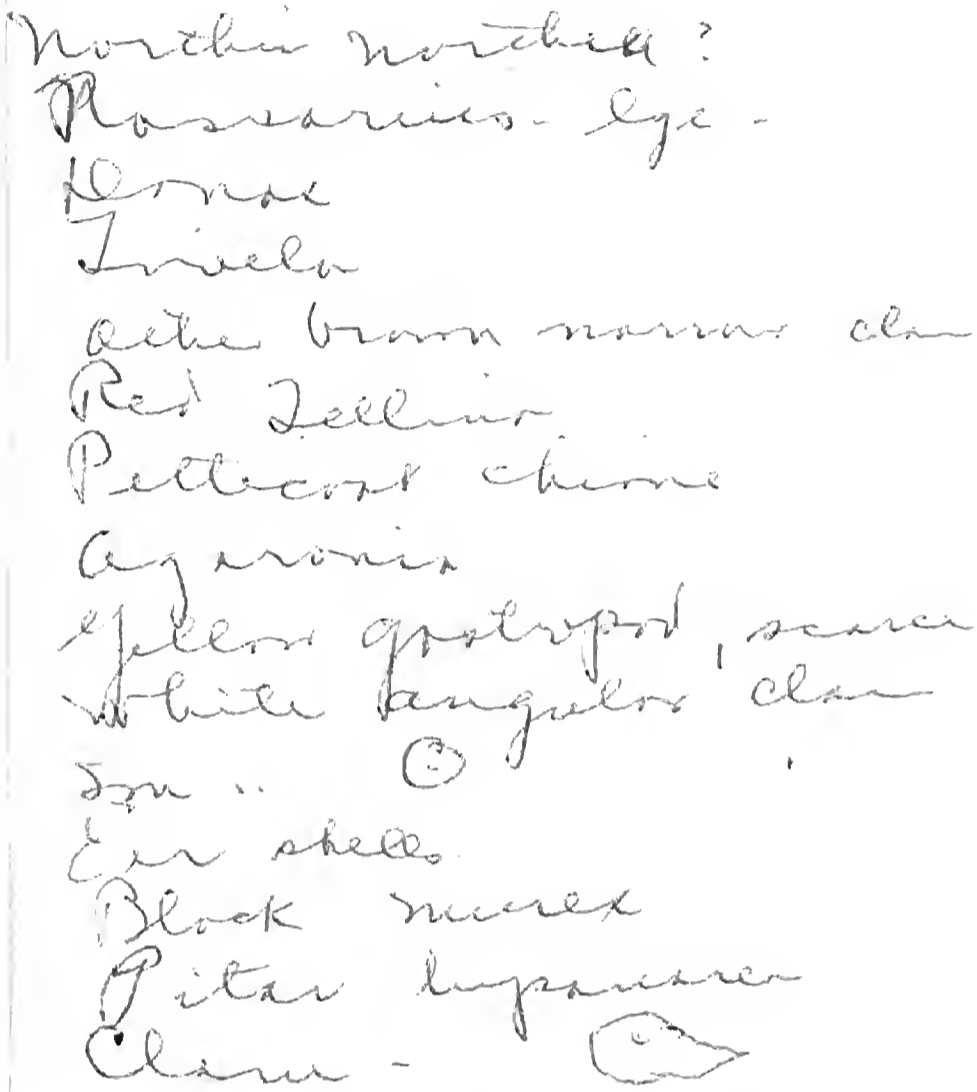 Northia northiae?
Nassarius - lge -
Donax
Tivela
Other brown narrow clam
Red Tellina
Petticoat chione
Agaronia
Yellow gastropod, scarce
White angular clam
Sm ..
Ear shells
Black murex
Pitar lupanaria
Clam -